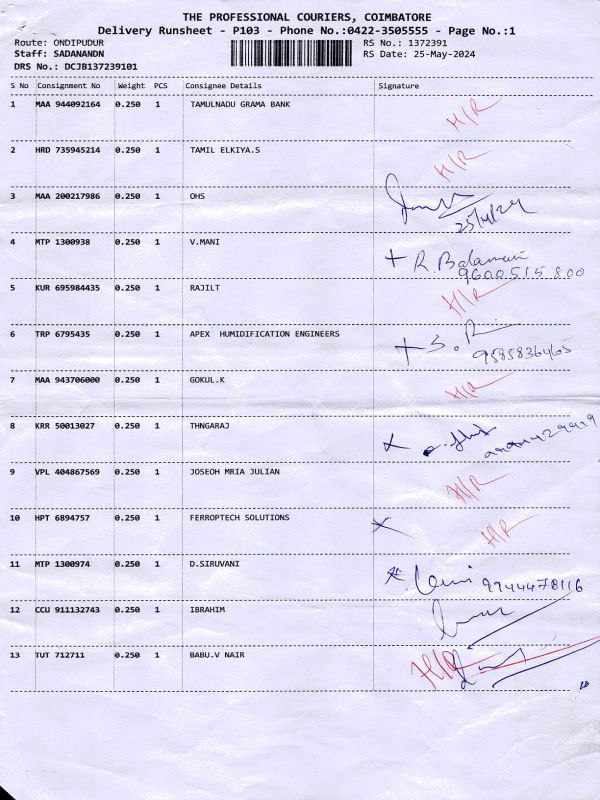 THE PROFESSIONAL COURIERS, COIMBATORE
Delivery Runsheet - P103 - Phone No.:0422-3505555 - Page No.:1
Route: ONDIPUDUR RS No.: 1372391
Staff: SADANANDN RS Date: 25-May-2024
DRS No.: DCJB137239101
S No Consignment No Weight PCS Consignee Details Signature
1 MAA 944092164 0.250 1 TAMULNADU GRAMA BANK H/R
2 HRD 735945214 0.250 1 TAMIL ELKIYA.S H/R
3 MAA 200217986 0.250 1 OHS
4 MTP 1300938 0.250 1 V.MANI R. Balamani
9600515800
5 KUR 695984435 0.250 1 RAJILT H/R
6 TRP 6795435 0.250 1 APEX HUMIDIFICATION ENGINEERS
9585836465
7 MAA 943706000 0.250 1 GOKUL.K H/R
8 KRR 50013027 0.250 1 THNGARAJ
9 VPL 404867569 0.250 1 JOSEOH MRIA JULIAN H/R
10 HPT 6894757 0.250 1 FERROPTECH SOLUTIONS H/R
11 MTP 1300974 0.250 1 D.SIRUVANI 9744478116
12 CCU 911132743 0.250 1 IBRAHIM
13 TUT 712711 0.250 1 BABU.V NAIR H/R